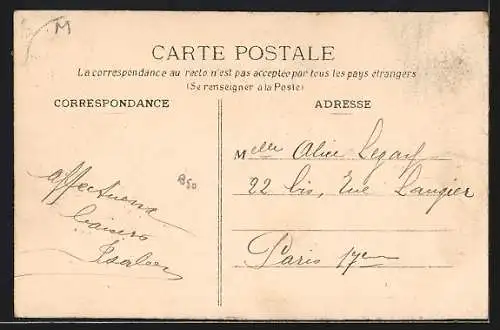 M
CARTE POSTALE
La correspondance au recto n'est pas acceptée par tous les pays étrangers
(Se renseigner à la Poste)
CORRESPONDANCE
ADRESSE
Melle Alice
22 bis, Rue Laugier
Paris 17em
affectueux
baisers